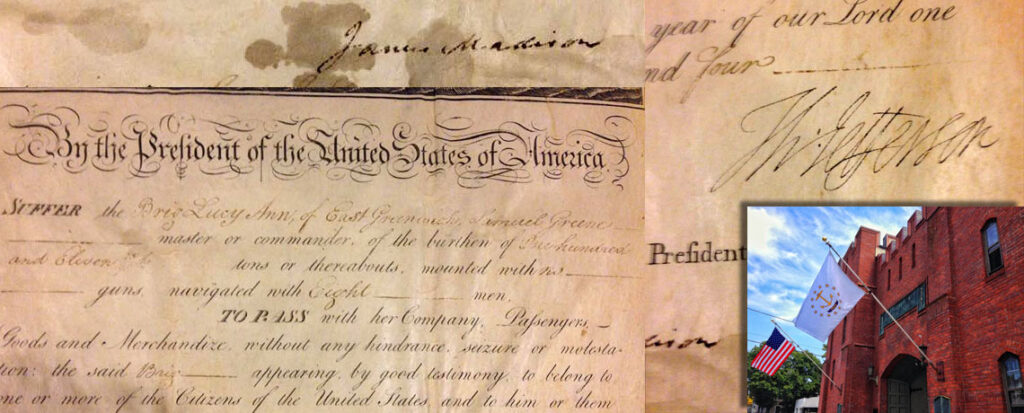 James Madison
By the Preſident of the United States of America.
SUFFER the Brig Lucy Ann, of East Greenwich, Samuel Greene
master or commander, of the burthen of One hundred
and Eleven tons or thereabouts, mounted with no
guns, navigated with Eight men,
TO PASS with her Company, Paſsengers,
Goods and Merchandize, without any hindrance, seizure or molesta-
tion: the said Brig appearing, by good testimony, to belong to
one or more of the Citizens of the United States, and to him or them
year of our Lord one
nd four
Th: Jefferson
Preſident